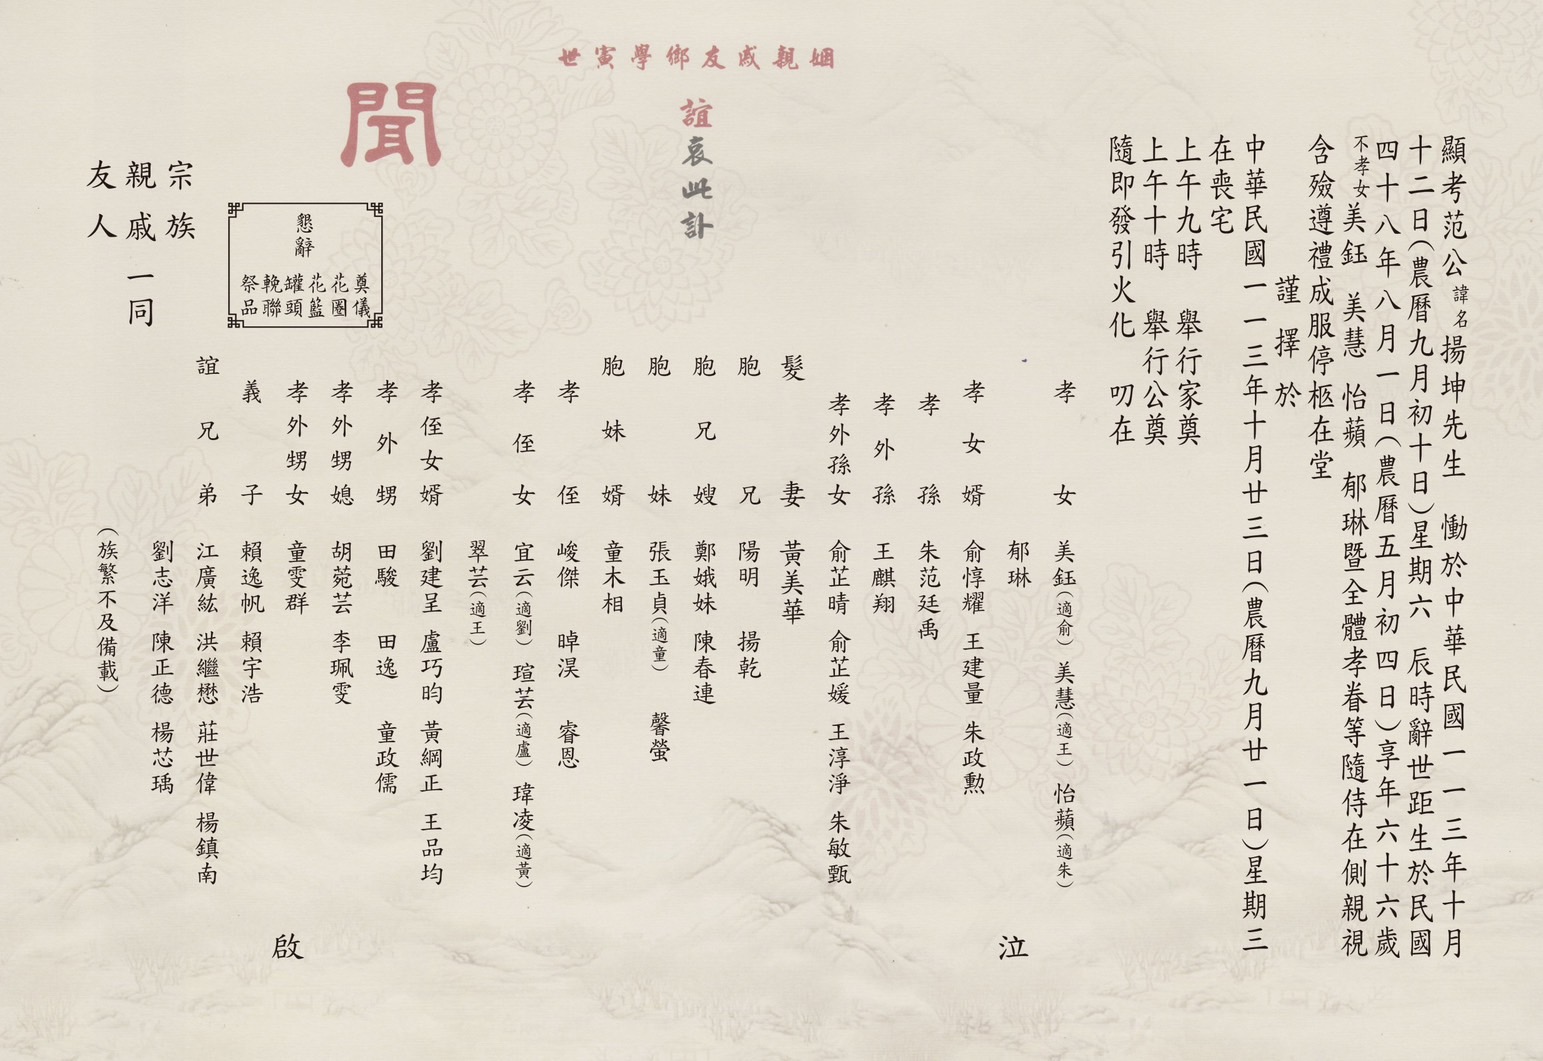 顯考范公諱名揚坤先生　慟於中華民國一一三年十月
十二日（農曆九月初十日）星期六　辰時辭世距生於民國
四十八年八月一日（農曆五月初四日）享年六十六歲
不孝女美鈺　美慧　怡蘋　郁琳暨全體孝眷等隨侍在側親視
含殮遵禮成服停柩在堂
謹擇於
中華民國一一三年十月廿三日（農曆九月廿一日）星期三
在喪宅
上午九時　舉行家奠
上午十時　舉行公奠
隨即發引火化　叨在
姻親戚友鄉學寅世
誼哀此訃
聞
孝女　美鈺（適俞）　美慧（適王）　怡蘋（適朱）
郁琳
孝女婿　俞惇耀　王建量　朱政勲
孝孫　朱范廷禹
孝外孫　王麒翔
孝外孫女　俞芷晴　俞芷媛　王淳淨　朱敏甄
髮妻　黃美華
胞兄　陽明　揚乾
胞兄嫂　鄭娥妹　陳春連
胞妹　張玉貞（適童）　馨螢
胞妹婿　童木相
孝侄　峻傑　晫淏　睿恩
孝侄女　宜云（適劉）　瑄芸（適盧）　瑋凌（適黃）
翠芸（適王）
孝侄女婿　劉建呈　盧巧昀　黃綱正　王品均
孝外甥　田駿　田逸　童政儒
孝外甥媳　胡菀芸　李珮雯
孝外甥女　童雯群
義子　賴逸帆　賴宇浩
誼兄弟　江廣紘　洪繼懋　莊世偉　楊鎮南
劉志洋　陳正德　楊芯瑀
（族繁不及備載）
泣
啟
懇辭
奠儀
花圈
花籃
罐頭
輓聯
祭品
宗族
親戚一同
友人